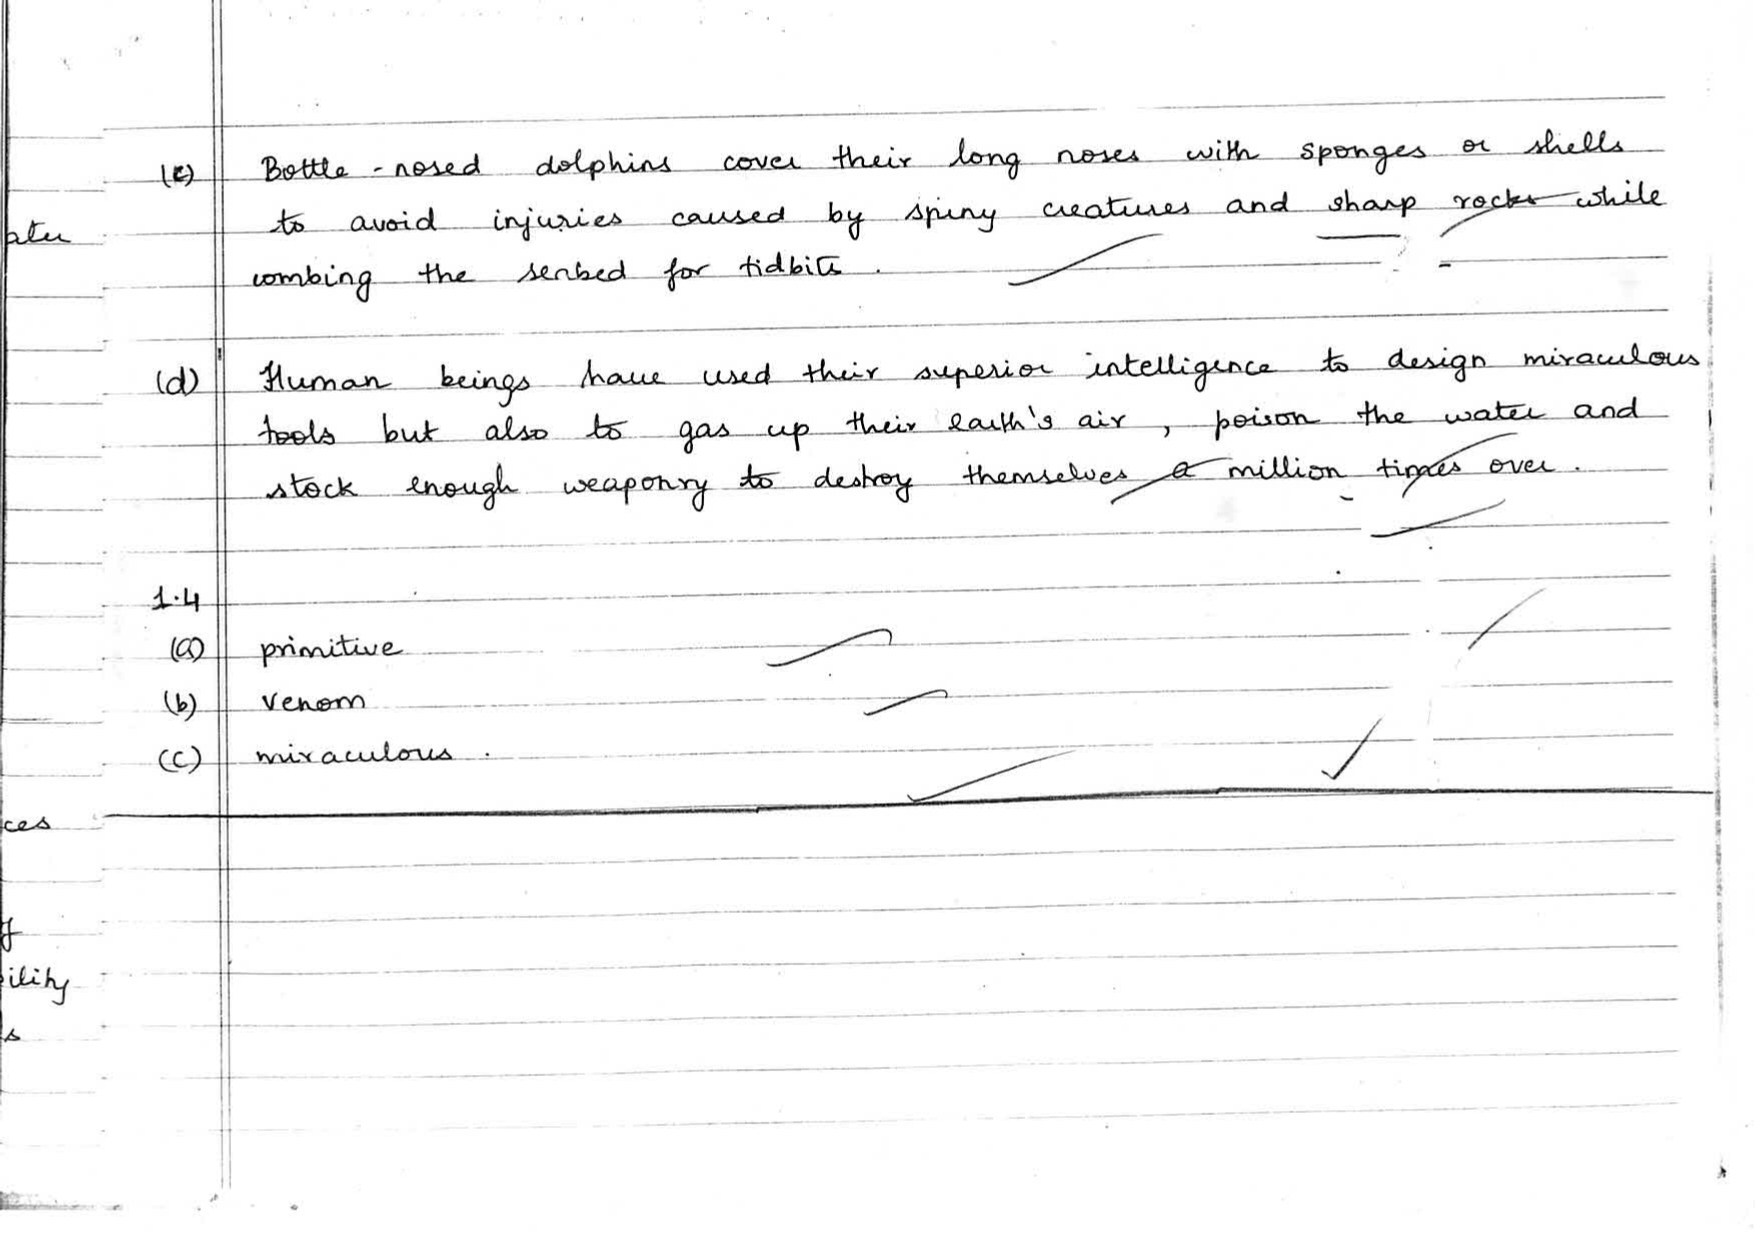 (c) Bottle-nosed dolphins cover their long noses with sponges or shells
to avoid injuries caused by spiny creatures and sharp rocks while
combing the senbed for tidbits.
(d) Human beings have used their superior intelligence to design miraculous
tools but also to gas up their earth's air, poison the water and
stock enough weaponry to destroy themselves a million times over.
1.4
(a) primitive
(b) venom
(c) miraculous.
ces
ility
s